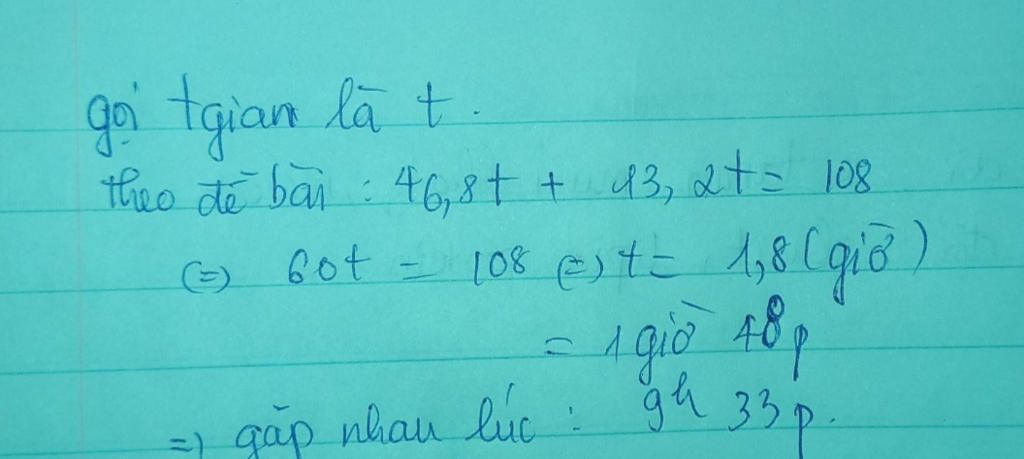 gọi tgian là t.
theo đề bài : 46,8t + 13,2t = 108
(=) 60t = 108 (=) t = 1,8 (giờ)
= 1 giờ 48p
=) gặp nhau lúc : 9h 33p.